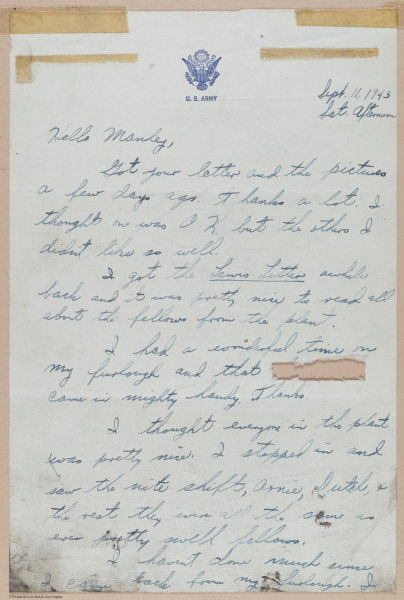 U. S. ARMY
Sept. 11, 1943
Sat. Afternoon
Hello Manley,
Got your letter and the pictures
a few days ago. Thanks a lot. I
thought one was O K. but the others I
didn't like so well.
I got the Lewis Letter awhile
back and it was pretty nice to read all
about the fellows from the plant.
I had a wonderful time on
my furlough and that
came in mighty handy. Thanks.
I thought everyone in the plant
was pretty nice. I stopped in and
saw the nite shift, Arnie, Dutch, &
the rest they were all the same as
ever pretty swell fellows.
I havent done much since
I came back from my furlough. I